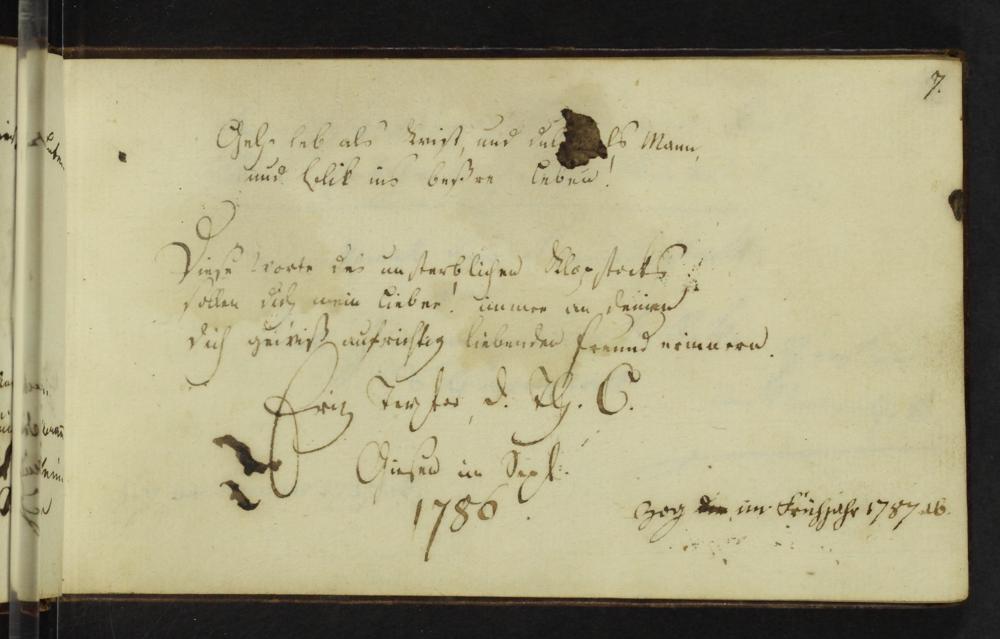 7.
Geh, leb als Krist, und als Mann,
und Blik ins beßre Leben!
Diese Worte des unsterblichen Klopstocks
sollen dich mein Lieber! immer an deinen
dich gewiß aufrichtig liebenden Freund erinnern.
Friz d. Th. C.
Giesen im Sept.
1786.
zog im Frühjahr 1787 ab.